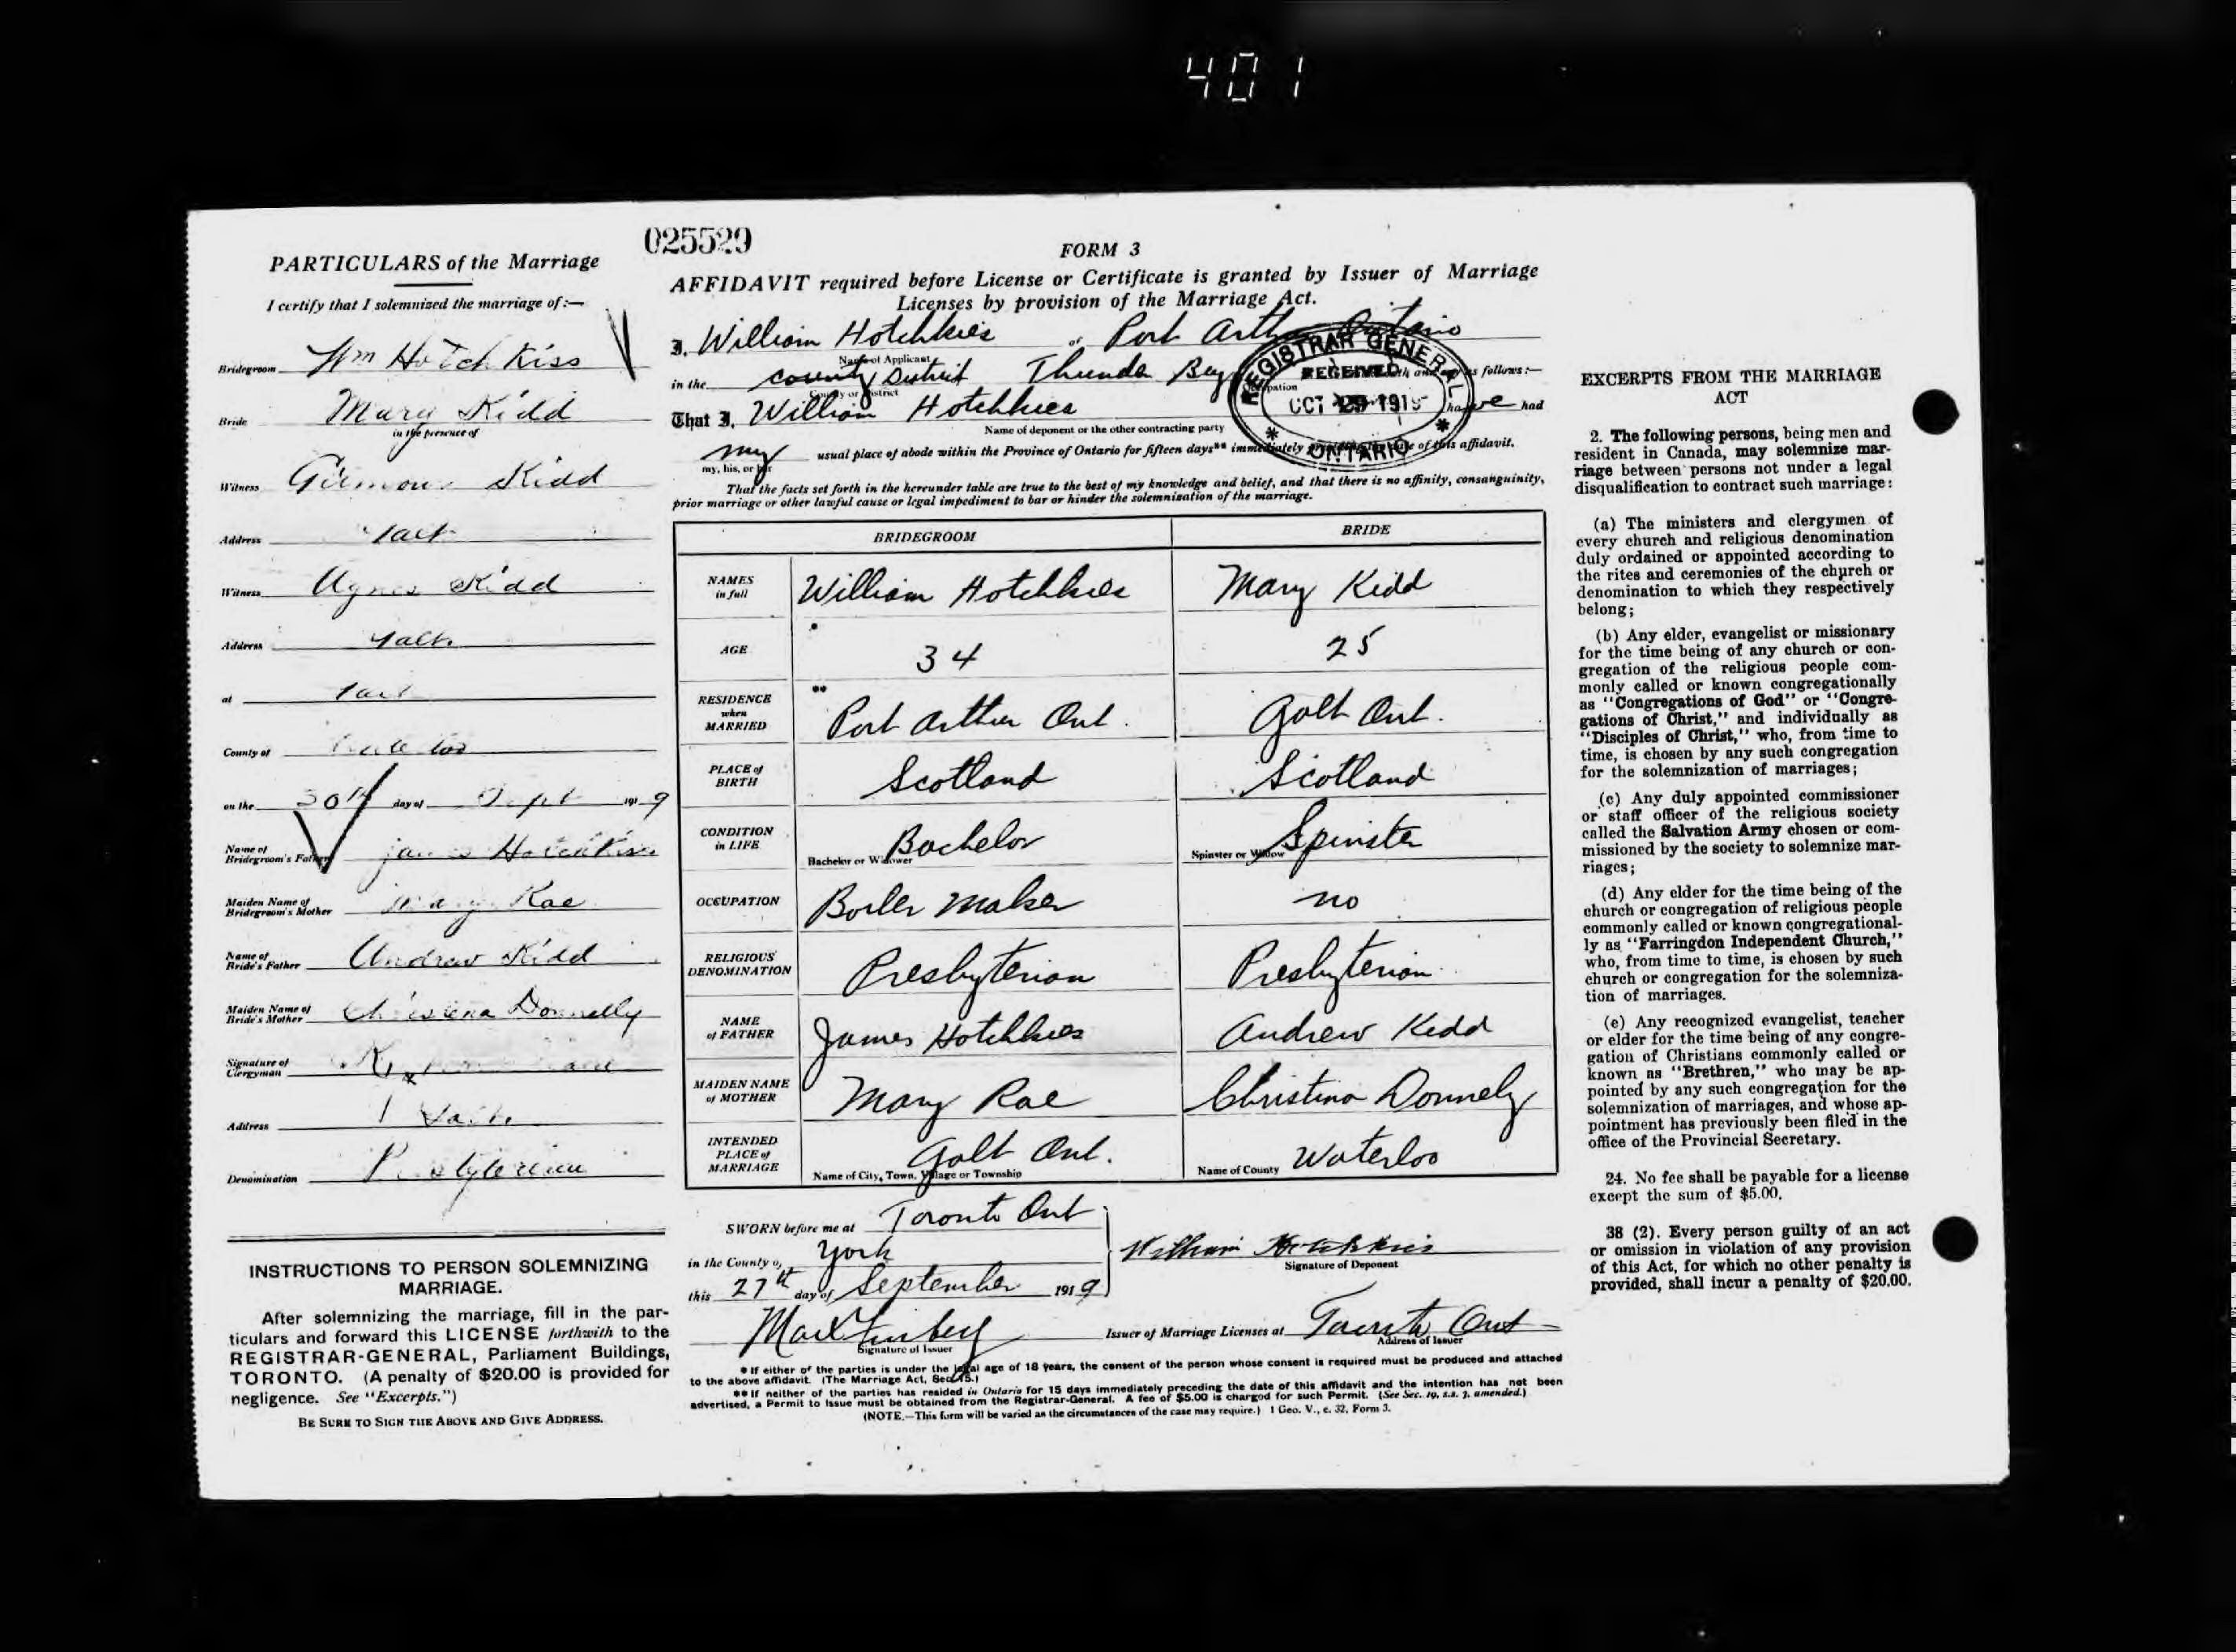 401
025529
PARTICULARS of the Marriage
I certify that I solemnized the marriage of:—
Bridegroom Wm Hotchkiss
Bride Mary Kidd
in the presence of
Witness Kidd
Address Galt
Witness Agnes Kidd
Address Galt
at Galt
County of Waterloo
on the 30th day of Sept 1919
Name of
Bridegroom's Father James Hotchkiss
Maiden Name of
Bridegroom's Mother Mary Rae
Name of
Bride's Father Andrew Kidd
Maiden Name of
Bride's Mother Donnelly
Signature of
Clergyman
Address Galt
Denomination Presbyterian
INSTRUCTIONS TO PERSON SOLEMNIZING
MARRIAGE.
After solemnizing the marriage, fill in the par-
ticulars and forward this LICENSE forthwith to the
REGISTRAR-GENERAL, Parliament Buildings,
TORONTO. (A penalty of $20.00 is provided for
negligence. See "Excerpts.")
BE SURE TO SIGN THE ABOVE AND GIVE ADDRESS.
FORM 3
AFFIDAVIT required before License or Certificate is granted by Issuer of Marriage
Licenses by provision of the Marriage Act.
I, William Hotchkies of Port Arthur Ontario
Name of Applicant
in the county District Thunder Bay follows:—
County or District
That I, William Hotchkies have had
Name of deponent or the other contracting party
my usual place of abode within the Province of Ontario for fifteen days** immediately of this affidavit.
my, his, or her
REGISTRAR GENERAL
RECEIVED
OCT 29 191
ONTARIO
That the facts set forth in the hereunder table are true to the best of my knowledge and belief, and that there is no affinity, consanguinity,
prior marriage or other lawful cause or legal impediment to bar or hinder the solemnisation of the marriage.
BRIDEGROOM BRIDE
NAMES
in full William Hotchkies Mary Kidd
AGE * 34 25
RESIDENCE
when
MARRIED ** Port Arthur Ont. Galt Ont.
PLACE of
BIRTH Scotland Scotland
CONDITION
in LIFE Bachelor Spinster
Bachelor or Widower Spinster or Widow
OCCUPATION Boiler Maker no
RELIGIOUS
DENOMINATION Presbyterian Presbyterian
NAME
of FATHER James Hotchkies Andrew Kidd
MAIDEN NAME
of MOTHER Mary Rae Christina Donnely
INTENDED
PLACE of
MARRIAGE Galt Ont. Waterloo
Name of City, Town, Village or Township Name of County
SWORN before me at Toronto Ont
in the County of York
this 27th day of September 1919
William Hotchkies
Signature of Deponent
Signature of Issuer
Issuer of Marriage Licenses at Toronto Ont
Address of Issuer
* If either of the parties is under the legal age of 18 years, the consent of the person whose consent is required must be produced and attached
to the above affidavit. (The Marriage Act, Sec. 15.)
** If neither of the parties has resided in Ontario for 15 days immediately preceding the date of this affidavit and the intention has not been
advertised, a Permit to Issue must be obtained from the Registrar-General. A fee of $5.00 is charged for such Permit. (See Sec. 19, s.s. 3, amended.)
(NOTE.—This form will be varied as the circumstances of the case may require.) 1 Geo. V., c. 32, Form 3.
EXCERPTS FROM THE MARRIAGE
ACT
2. The following persons, being men and
resident in Canada, may solemnize mar-
riage between persons not under a legal
disqualification to contract such marriage:
(a) The ministers and clergymen of
every church and religious denomination
duly ordained or appointed according to
the rites and ceremonies of the church or
denomination to which they respectively
belong;
(b) Any elder, evangelist or missionary
for the time being of any church or con-
gregation of the religious people com-
monly called or known congregationally
as "Congregations of God" or "Congre-
gations of Christ," and individually as
"Disciples of Christ," who, from time to
time, is chosen by any such congregation
for the solemnization of marriages;
(c) Any duly appointed commissioner
or staff officer of the religious society
called the Salvation Army chosen or com-
missioned by the society to solemnize mar-
riages;
(d) Any elder for the time being of the
church or congregation of religious people
commonly called or known congregational-
ly as "Farringdon Independent Church,"
who, from time to time, is chosen by such
church or congregation for the solemniza-
tion of marriages.
(e) Any recognized evangelist, teacher
or elder for the time being of any congre-
gation of Christians commonly called or
known as "Brethren," who may be ap-
pointed by any such congregation for the
solemnization of marriages, and whose ap-
pointment has previously been filed in the
office of the Provincial Secretary.
24. No fee shall be payable for a license
except the sum of $5.00.
38 (2). Every person guilty of an act
or omission in violation of any provision
of this Act, for which no other penalty is
provided, shall incur a penalty of $20.00.